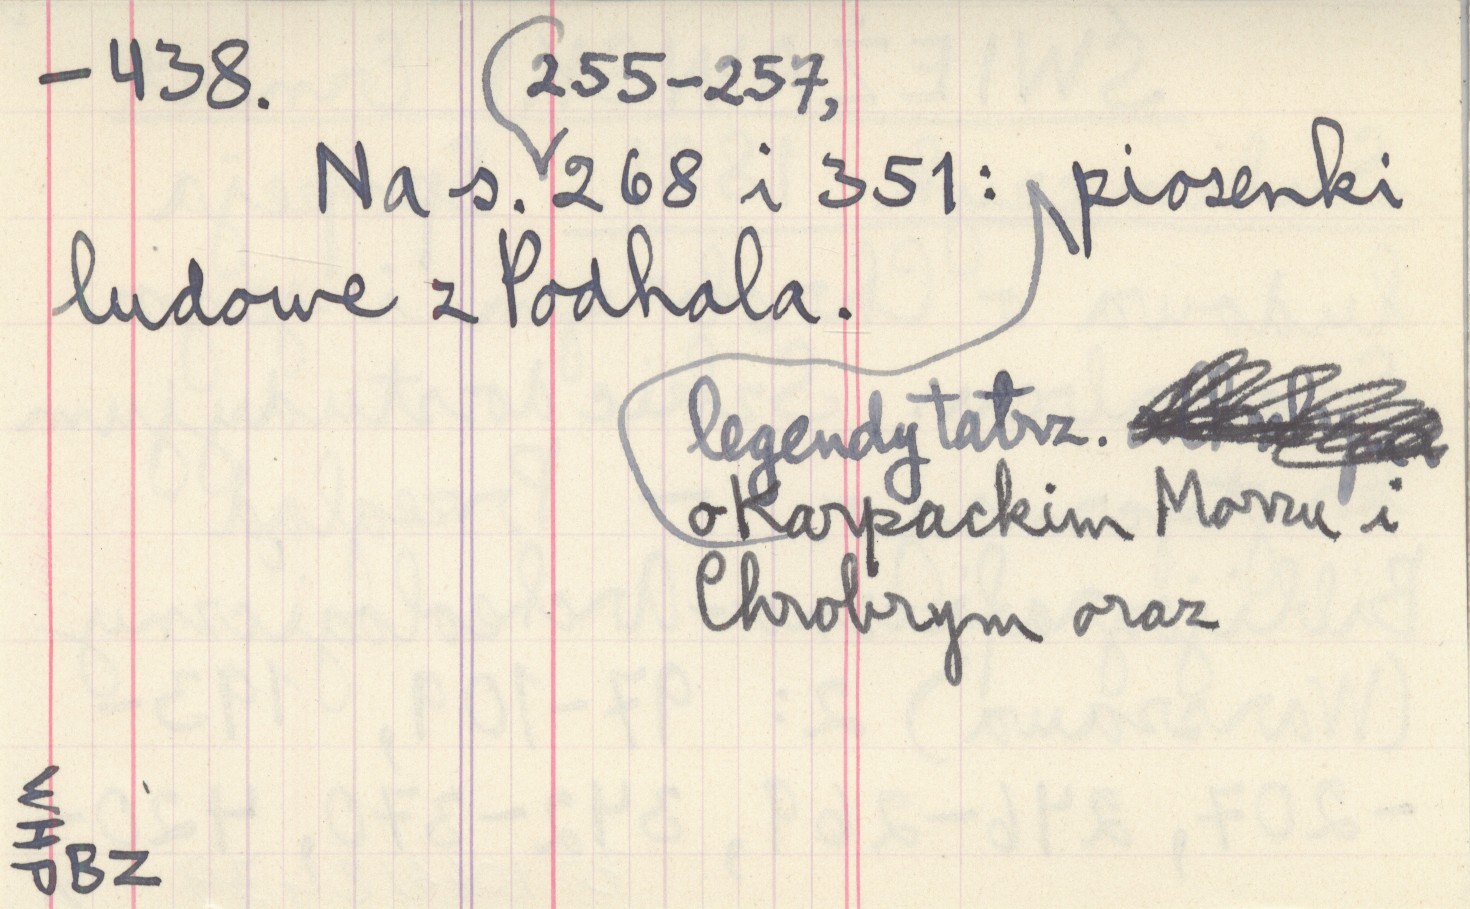 -438.
255-257,
Na s. 268 i 351: piosenki
ludowe z Podhala.
legendy tatrz.
o Karpackim Morzu i
Chrobrym oraz
WHP
BZ